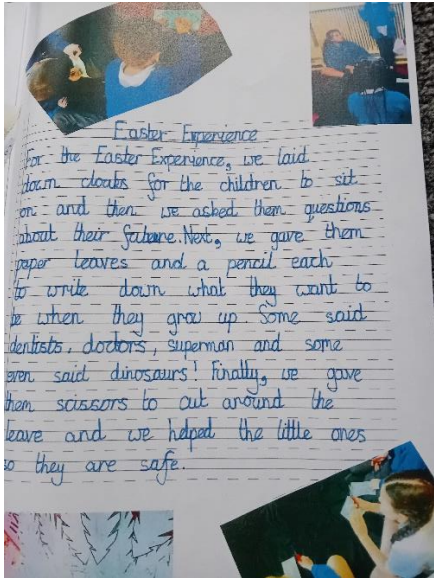 Easter Experience
For the Easter Experience, we laid
down cloaks for the children to sit
on and then we asked them questions
about their future. Next, we gave them
paper leaves and a pencil each
to write down what they want to
be when they grow up Some said
dentists, doctors, superman and some
even said dinosaurs! Finally, we gave
them scissors to cut around the
leave and we helped the little ones
so they are safe.